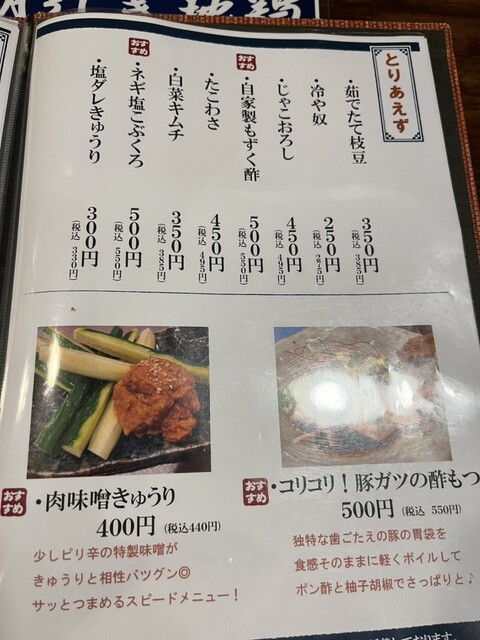 とりあえず
・茹でたて枝豆 350円 (税込 385円)
・冷や奴 250円 (税込 275円)
・じゃこおろし 450円 (税込 495円)
おすすめ ・自家製もずく酢 500円 (税込 550円)
・たこわさ 450円 (税込 495円)
・白菜キムチ 350円 (税込 385円)
おすすめ ・ネギ塩こぶくろ 500円 (税込 550円)
・塩ダレきゅうり 300円 (税込 330円)
おすすめ ・肉味噌きゅうり
400円 (税込440円)
少しピリ辛の特製味噌が
きゅうりと相性バツグン◎
サッとつまめるスピードメニュー！
おすすめ ・コリコリ！豚ガツの酢もつ
500円 (税込 550円)
独特な歯ごたえの豚の胃袋を
食感そのままに軽くボイルして
ポン酢と柚子胡椒でさっぱりと♪
ております。